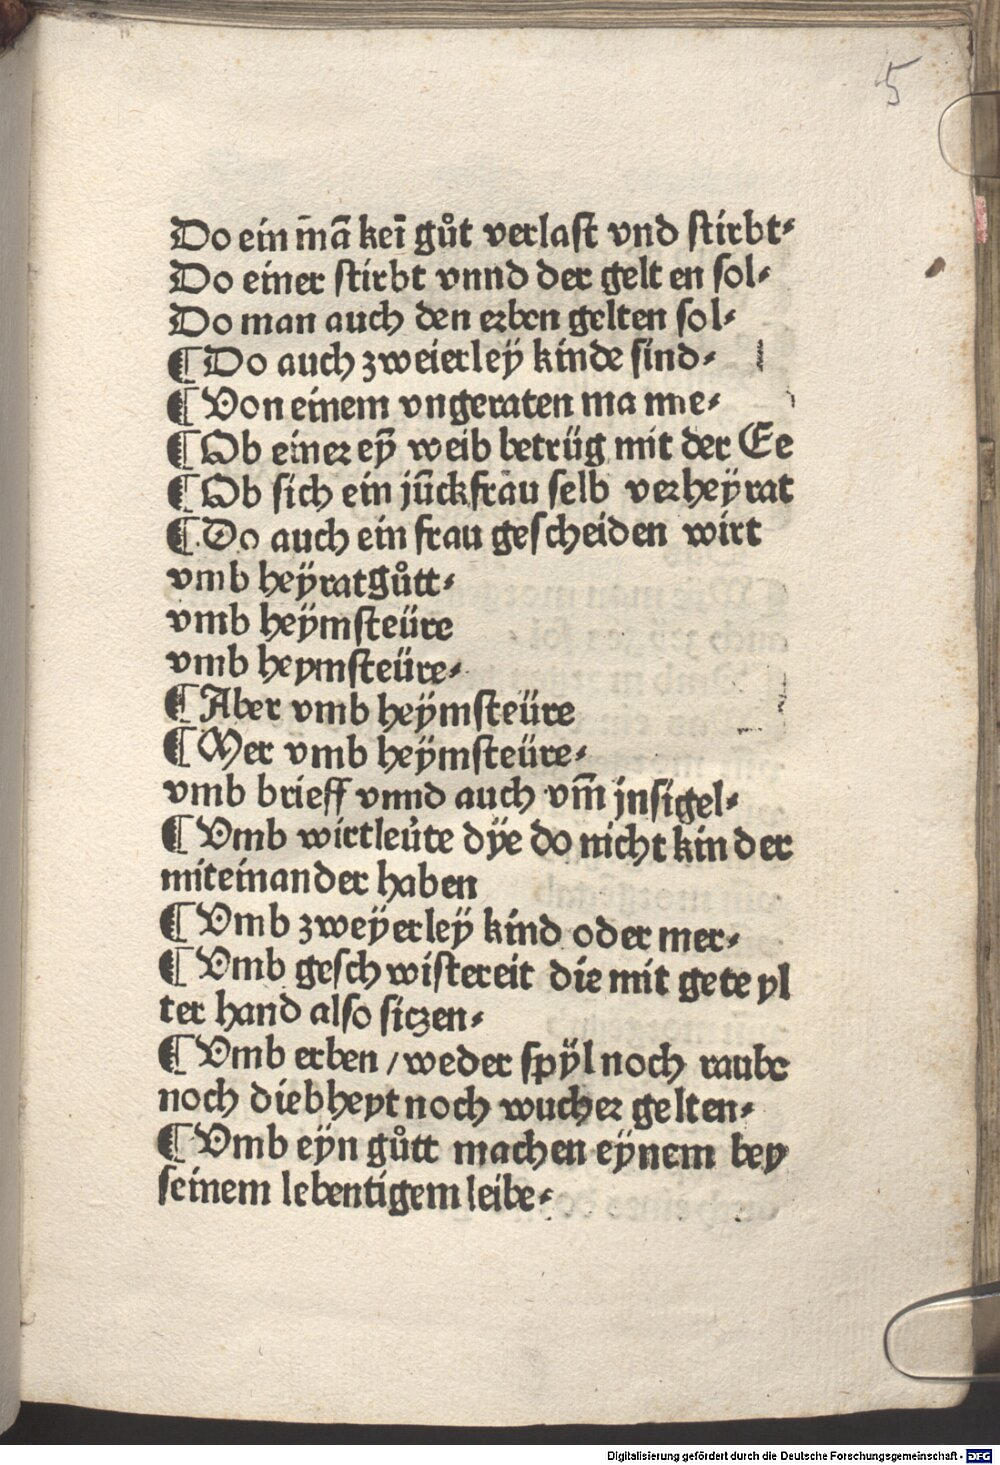 5
Do ein m̄ā keī gůt verlast vnd stirbt⸗
Do einer stirbt vnnd der gelt en sol⸗
Do man auch den erben gelten sol⸗
¶ Do auch zweierleÿ kinde sind⸗
¶ Von einem vngeraten ma nne⸗
¶ Ob einer eȳ weib betrüg mit der Ee
¶ Ob sich ein jūckfrau selb verheÿrat
¶ Do auch ein frau gescheiden wirt
vmb heÿratgůtt⸗
vmb heÿmsteüre
vmb heymsteüre⸗
¶ Aber vmb heÿmsteüre
¶ Mer vmb heÿmsteüre⸗
vmb brieff vnnd auch vm̄ jnsigel⸗
¶ Vmb wirtleůte dÿe do nicht kin der
miteinander haben
¶ Vmb zweÿerleÿ kind oder mer⸗
¶ Vmb geschwistereit die mit gete yl
ter hand also siczen⸗
¶ Vmb erben / weder spÿl noch raube
noch diebheyt noch wucher gelten⸗
¶ Vmb eÿn gůtt machen eÿnem bey
seinem lebentigem leibe⸗
Digitalisierung gefördert durch die Deutsche Forschungsgemeinschaft - DFG